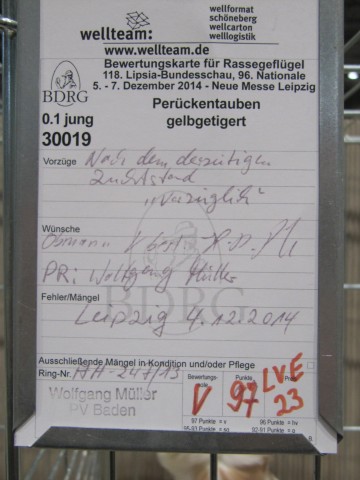 wellteam:
wellformat
schöneberg
wellcarton
welllogistik
www.wellteam.de
Bewertungskarte für Rassegeflügel
118. Lipsia-Bundesschau, 96. Nationale
5. - 7. Dezember 2014 - Neue Messe Leipzig
BDRG
Perückentauben
gelbgetigert
0.1 jung
30019
Vorzüge Nach dem derzeitigen
Zuchtstand
"Vorzüglich"
Wünsche
Obmann
PR: Wolfgang Müller
Fehler/Mängel
Leipzig 4.12.2014
BDRG
Ausschließende Mängel in Kondition und/oder Pflege
Ring-Nr. AH-247/13
Bewertungs-
note
Punkte
V 97 LVE
23
Wolfgang Müller
PV Baden
97 Punkte = v
96 Punkte = hv